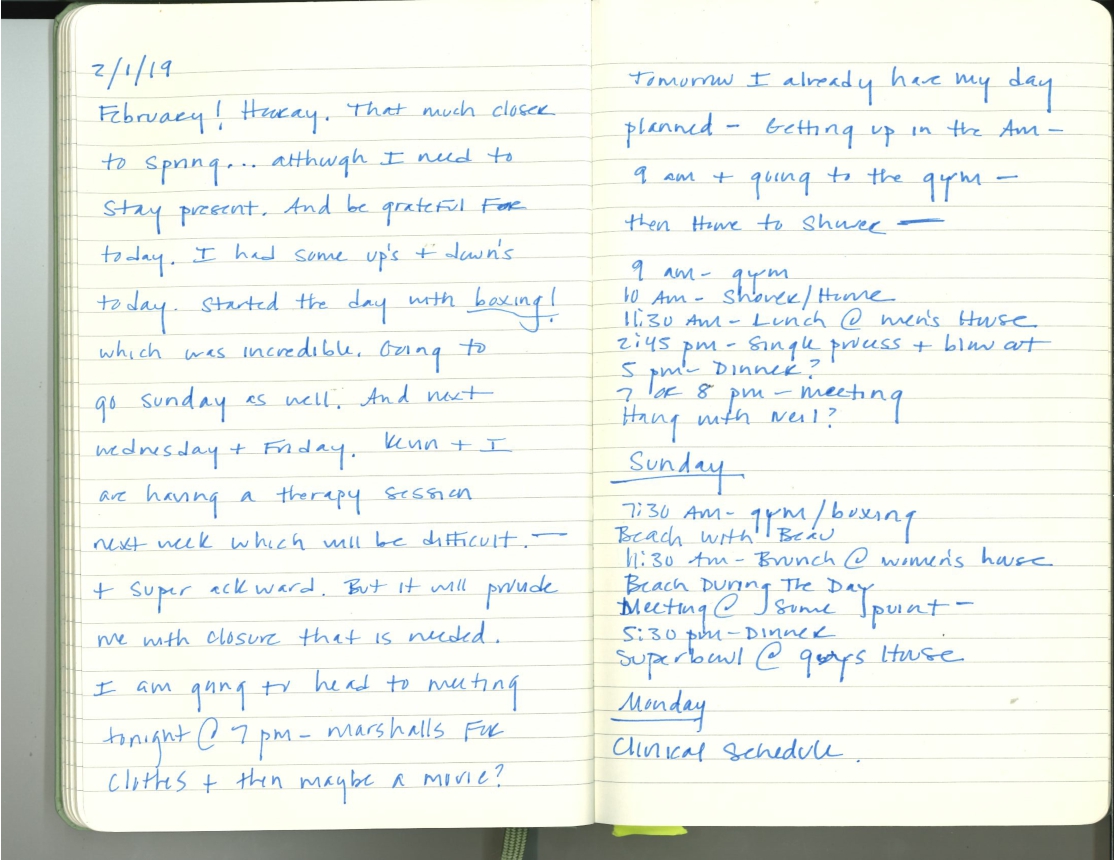 2/1/19
February! Hooray. That much closer
to spring... although I need to
stay present. And be grateful for
today. I had some up's + down's
today. Started the day with boxing!
which was incredible. Going to
go Sunday as well. And next
wednesday + Friday. Kevin + I
are having a therapy session
next week which will be difficult. —
+ super ackward. But it will provide
me with closure that is needed.
I am going to head to meeting
tonight @ 7 pm - marshalls For
clothes + then maybe a movie?
Tomorrow I already have my day
planned - Getting up in the Am -
9 am + going to the gym -
then Home to Shower —
9 am - gym
10 Am - Shower/Home
11:30 Am - Lunch @ men's House
2:45 pm - Single process + blow out
5 pm - Dinner?
7 or 8 pm - meeting
Hang with Neil?
Sunday
7:30 Am - gym/boxing
Beach with Beau
11:30 Am - Brunch @ women's house
Beach During The Day
Meeting @ Some point -
5:30 pm - Dinner
Superbowl @ guys House
Monday
Clinical Schedule.